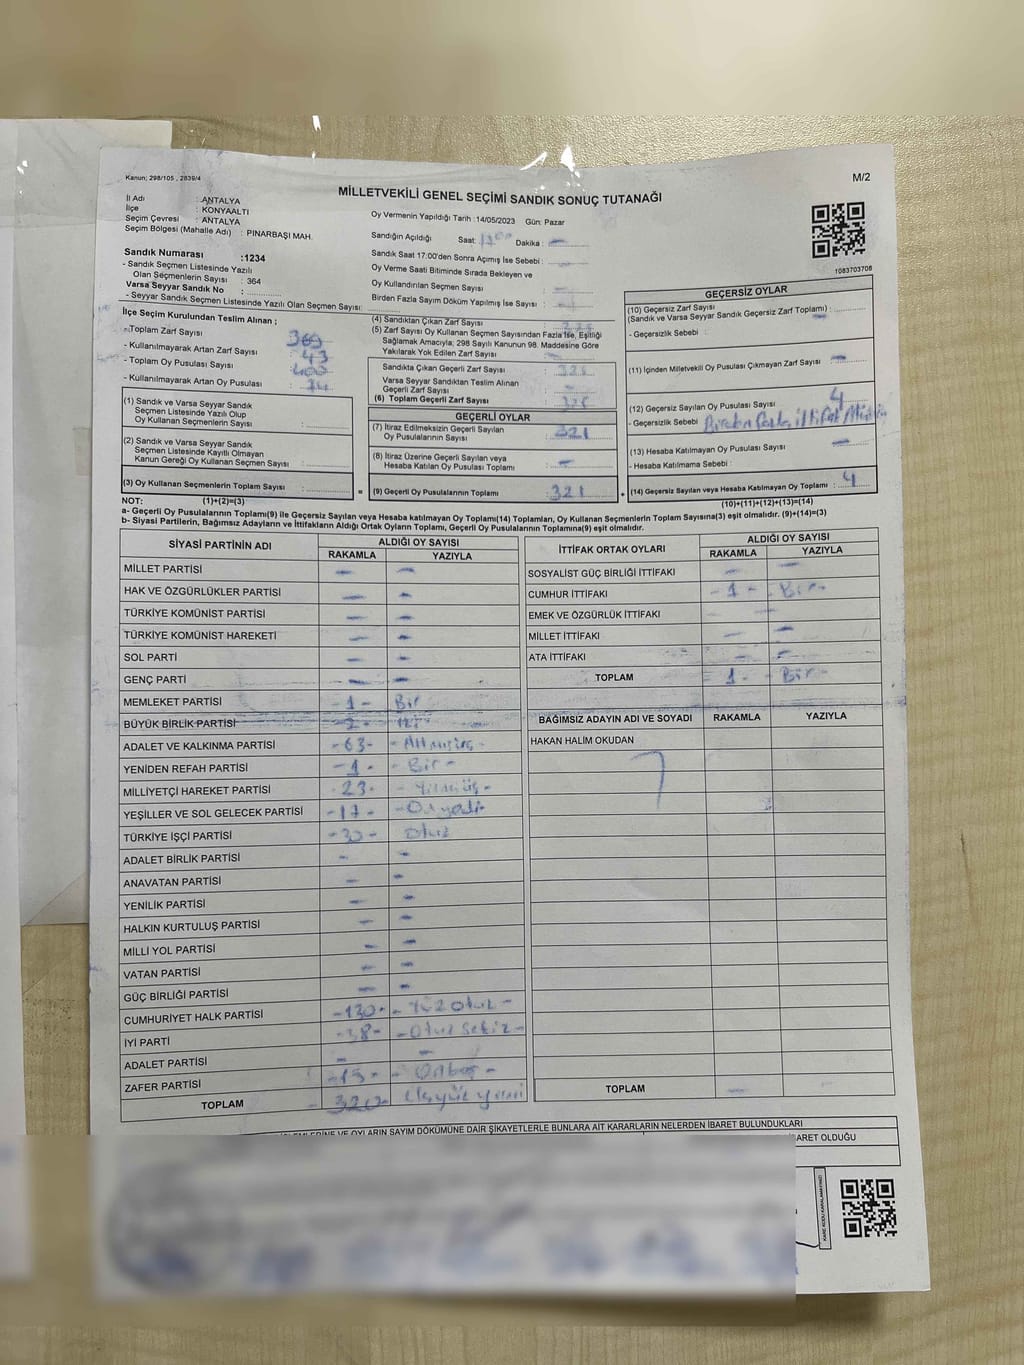 Kanun; 298/105 , 2839/4
M/2
MİLLETVEKİLİ GENEL SEÇİMİ SANDIK SONUÇ TUTANAĞI
İl Adı : ANTALYA
İlçe : KONYAALTI
Seçim Çevresi : ANTALYA
Seçim Bölgesi (Mahalle Adı) : PINARBAŞI MAH.
Sandık Numarası :1234
- Sandık Seçmen Listesinde Yazılı
Olan Seçmenlerin Sayısı : 364
Varsa Seyyar Sandık No :
- Seyyar Sandık Seçmen Listesinde Yazılı Olan Seçmen Sayısı:
Oy Vermenin Yapıldığı Tarih : 14/05/2023 Gün: Pazar
Sandığın Açıldığı Saat: Dakika : -
Sandık Saat 17:00'den Sonra Açımış İse Sebebi :
Oy Verme Saati Bitiminde Sırada Bekleyen ve
Oy Kullandırılan Seçmen Sayısı :
Birden Fazla Sayım Döküm Yapılmış İse Sayısı :
1083703708
İlçe Seçim Kurulundan Teslim Alınan ;
- Toplam Zarf Sayısı :
- Kullanılmayarak Artan Zarf Sayısı : 43
- Toplam Oy Pusulası Sayısı : 400
- Kullanılmayarak Artan Oy Pusulası : 74
(1) Sandık ve Varsa Seyyar Sandık
Seçmen Listesinde Yazılı Olup
Oy Kullanan Seçmenlerin Sayısı :
(2) Sandık ve Varsa Seyyar Sandık
Seçmen Listesinde Kayıtlı Olmayan
Kanun Gereği Oy Kullanan Seçmen Sayısı :
(3) Oy Kullanan Seçmenlerin Toplam Sayısı :
(4) Sandıktan Çıkan Zarf Sayısı :
(5) Zarf Sayısı Oy Kullanan Seçmen Sayısından Fazla İse, Eşitliği
Sağlamak Amacıyla; 298 Sayılı Kanunun 98. Maddesine Göre
Yakılarak Yok Edilen Zarf Sayısı :
Sandıkta Çıkan Geçerli Zarf Sayısı : 325
Varsa Seyyar Sandıktan Teslim Alınan
Geçerli Zarf Sayısı : -
(6) Toplam Geçerli Zarf Sayısı : 325
GEÇERLİ OYLAR
(7) İtiraz Edilmeksizin Geçerli Sayılan
Oy Pusulalarının Sayısı : 321
(8) İtiraz Üzerine Geçerli Sayılan veya
Hesaba Katılan Oy Pusulası Toplamı : -
= (9) Geçerli Oy Pusulalarının Toplamı : 321
GEÇERSİZ OYLAR
(10) Geçersiz Zarf Sayısı
(Sandık ve Varsa Seyyar Sandık Geçersiz Zarf Toplamı) : -
- Geçersizlik Sebebi :
(11) İçinden Milletvekili Oy Pusulası Çıkmayan Zarf Sayısı : -
(12) Geçersiz Sayılan Oy Pusulası Sayısı : 4
- Geçersizlik Sebebi : Birden fazla ittifak
(13) Hesaba Katılmayan Oy Pusulası Sayısı : -
- Hesaba Katılmama Sebebi :
+ (14) Geçersiz Sayılan veya Hesaba Katılmayan Oy Toplamı : 4
NOT: (1)+(2)=(3)
(10)+(11)+(12)+(13)=(14)
a- Geçerli Oy Pusulasının Toplamı(9) ile Geçersiz Sayılan veya Hesaba katılmayan Oy Toplamı(14) Toplamları, Oy Kullanan Seçmenlerin Toplam Sayısına(3) eşit olmalıdır. (9)+(14)=(3)
b- Siyasi Partilerin, Bağımsız Adayların ve İttifakların Aldığı Ortak Oyların Toplamı, Geçerli Oy Pusulalarının Toplamına(9) eşit olmalıdır.
SİYASİ PARTİNİN ADI
ALDIĞI OY SAYISI
RAKAMLA YAZIYLA
MİLLET PARTİSİ - -
HAK VE ÖZGÜRLÜKLER PARTİSİ - -
TÜRKİYE KOMÜNİST PARTİSİ - -
TÜRKİYE KOMÜNİST HAREKETİ - -
SOL PARTİ - -
GENÇ PARTİ - -
MEMLEKET PARTİSİ - 1 - Bir
BÜYÜK BİRLİK PARTİSİ - 2 - iki
ADALET VE KALKINMA PARTİSİ - 63 - - Altmışüç -
YENİDEN REFAH PARTİSİ - 1 - - Bir -
MİLLİYETÇİ HAREKET PARTİSİ - 23 - - Yirmiüç -
YEŞİLLER VE SOL GELECEK PARTİSİ - 17 - - Onyedi -
TÜRKİYE İŞÇİ PARTİSİ - 30 - otuz
ADALET BİRLİK PARTİSİ - -
ANAVATAN PARTİSİ - -
YENİLİK PARTİSİ - -
HALKIN KURTULUŞ PARTİSİ - -
MİLLİ YOL PARTİSİ - -
VATAN PARTİSİ - -
GÜÇ BİRLİĞİ PARTİSİ - -
CUMHURİYET HALK PARTİSİ - 130 - - Yüz otuz -
İYİ PARTİ - 38 - - Otuz sekiz -
ADALET PARTİSİ - -
ZAFER PARTİSİ - 15 - - Onbeş -
TOPLAM - 320 - Üçyüz yirmi
İTTİFAK ORTAK OYLARI
ALDIĞI OY SAYISI
RAKAMLA YAZIYLA
SOSYALİST GÜÇ BİRLİĞİ İTTİFAKI - -
CUMHUR İTTİFAKI - 1 - - Bir -
EMEK VE ÖZGÜRLÜK İTTİFAKI - -
MİLLET İTTİFAKI - -
ATA İTTİFAKI - -
TOPLAM - 1 - - Bir -
BAĞIMSIZ ADAYIN ADI VE SOYADI RAKAMLA YAZIYLA
HAKAN HALİM OKUDAN
TOPLAM - -
İŞLEMLERİNE VE OYLARIN SAYIM DÖKÜMÜNE DAİR ŞİKAYETLERLE BUNLARA AİT KARARLARIN NELERDEN İBARET BULUNDUKLARI
İBARET OLDUĞU
KARE KODU KARALAMAYINIZ!